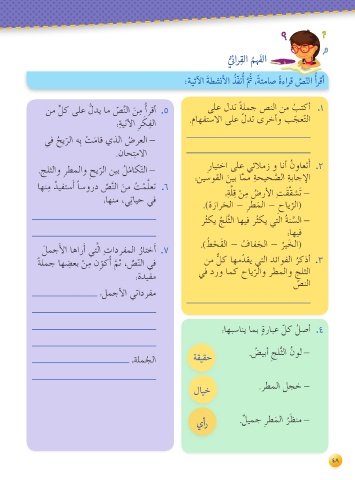 الفَهمُ القِرائيُّ
أقرأُ النّصَّ قراءةً صامتةً، ثُمَّ أُنفِّذُ الأنشطةَ الآتيةَ:
١. أكتبُ من النص جملةً تدل على
التّعجّب وأخرى تدلّ على الاستفهام.
٢. أتعاونُ أنا و زملائي على اختيارِ
الإجابةِ الصّحيحةِ ممّا بينَ القوسين.
– تشقّقتِ الأرضُ مِنْ قِلّةِ.
(الرّياحِ – المَطرِ – الحَرارَةِ).
– السّنةُ التي يكثُر فيها الثّلجُ يكثُر
فيها.
(الخيرُ – الجَفافُ – القَحطُ).
٣. أذكرُ الفوائد التي يقدّمها كلٌّ من
الثلجِ والمطرِ والرّياحِ كما ورد في
النصّ
٤. أصلُ كلَّ عبارةٍ بما يناسبها:
– لونُ الثّلجِ أبيضُ.
حقيقة
– خجل المطر.
خيال
– منظرُ المَطرِ جميلٌ.
رأي
٥. أقرأُ مِنَ النّصِّ ما يدلُّ على كلٍّ من
الفِكَرِ الآتيةِ.
– العرضُ الذي قامتْ بِه الرّيحُ في
الامتحانِ.
– التّكاملُ بين الرّيحِ والمطرِ والثلجِ.
٦. تعلّمْتُ مِنَ النّصِّ دروساً أستفيدُ منها
في حياتي، منها.
٧. أختارُ المفرداتِ الّتي أراها الأجملَ
في النّصِّ، ثمَّ أُكوّنُ مِنْ بعضِها جملةً
مفيدةً.
مفرداتي الأجمل.
الجُملة.
٤٨